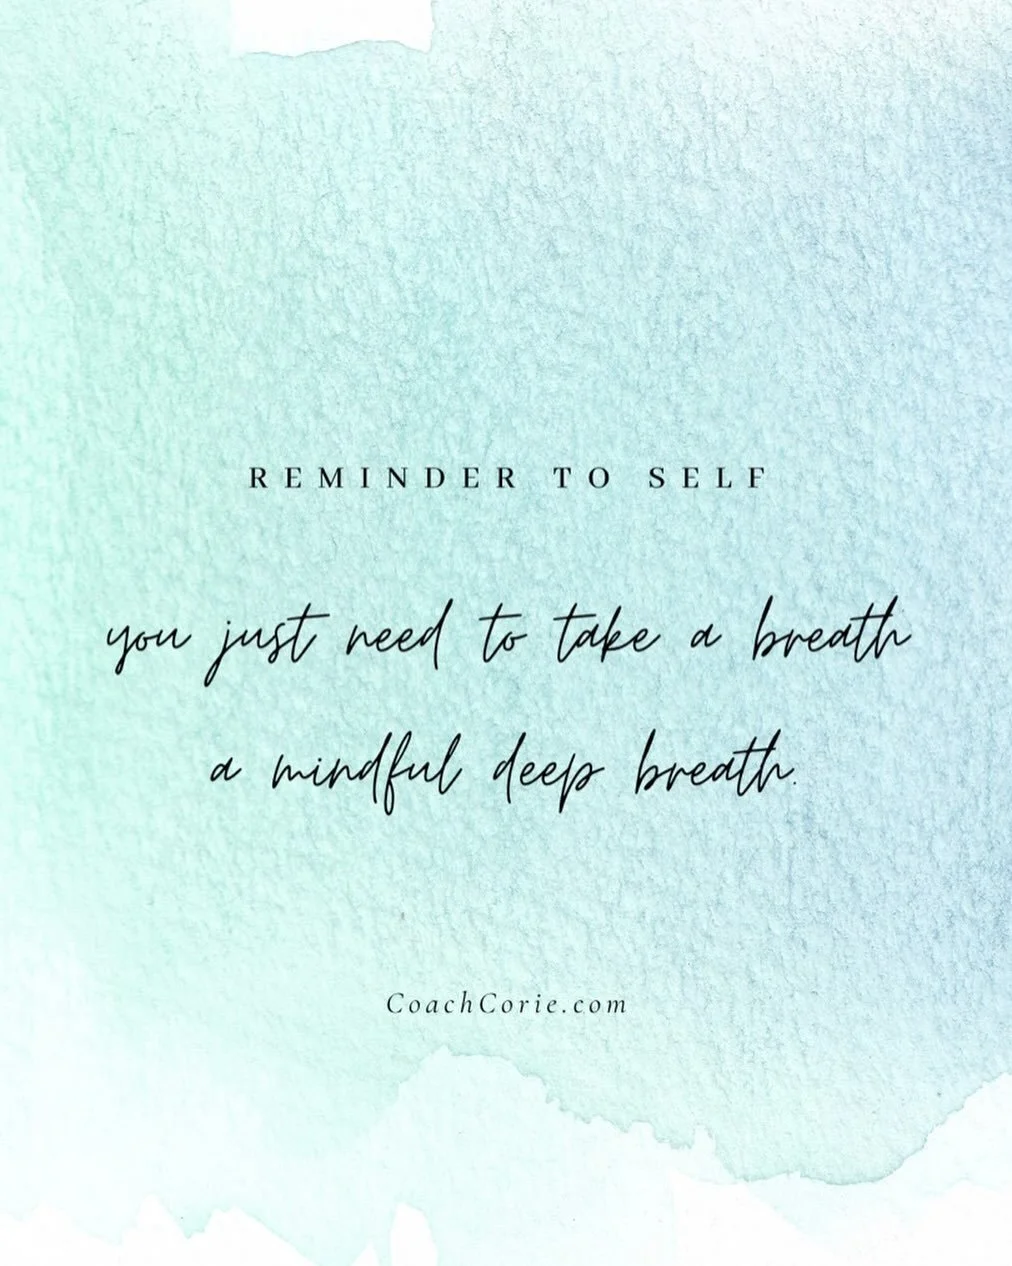 REMINDER TO SELF
you just need to take a breath
a mindful deep breath.
CoachCorie.com